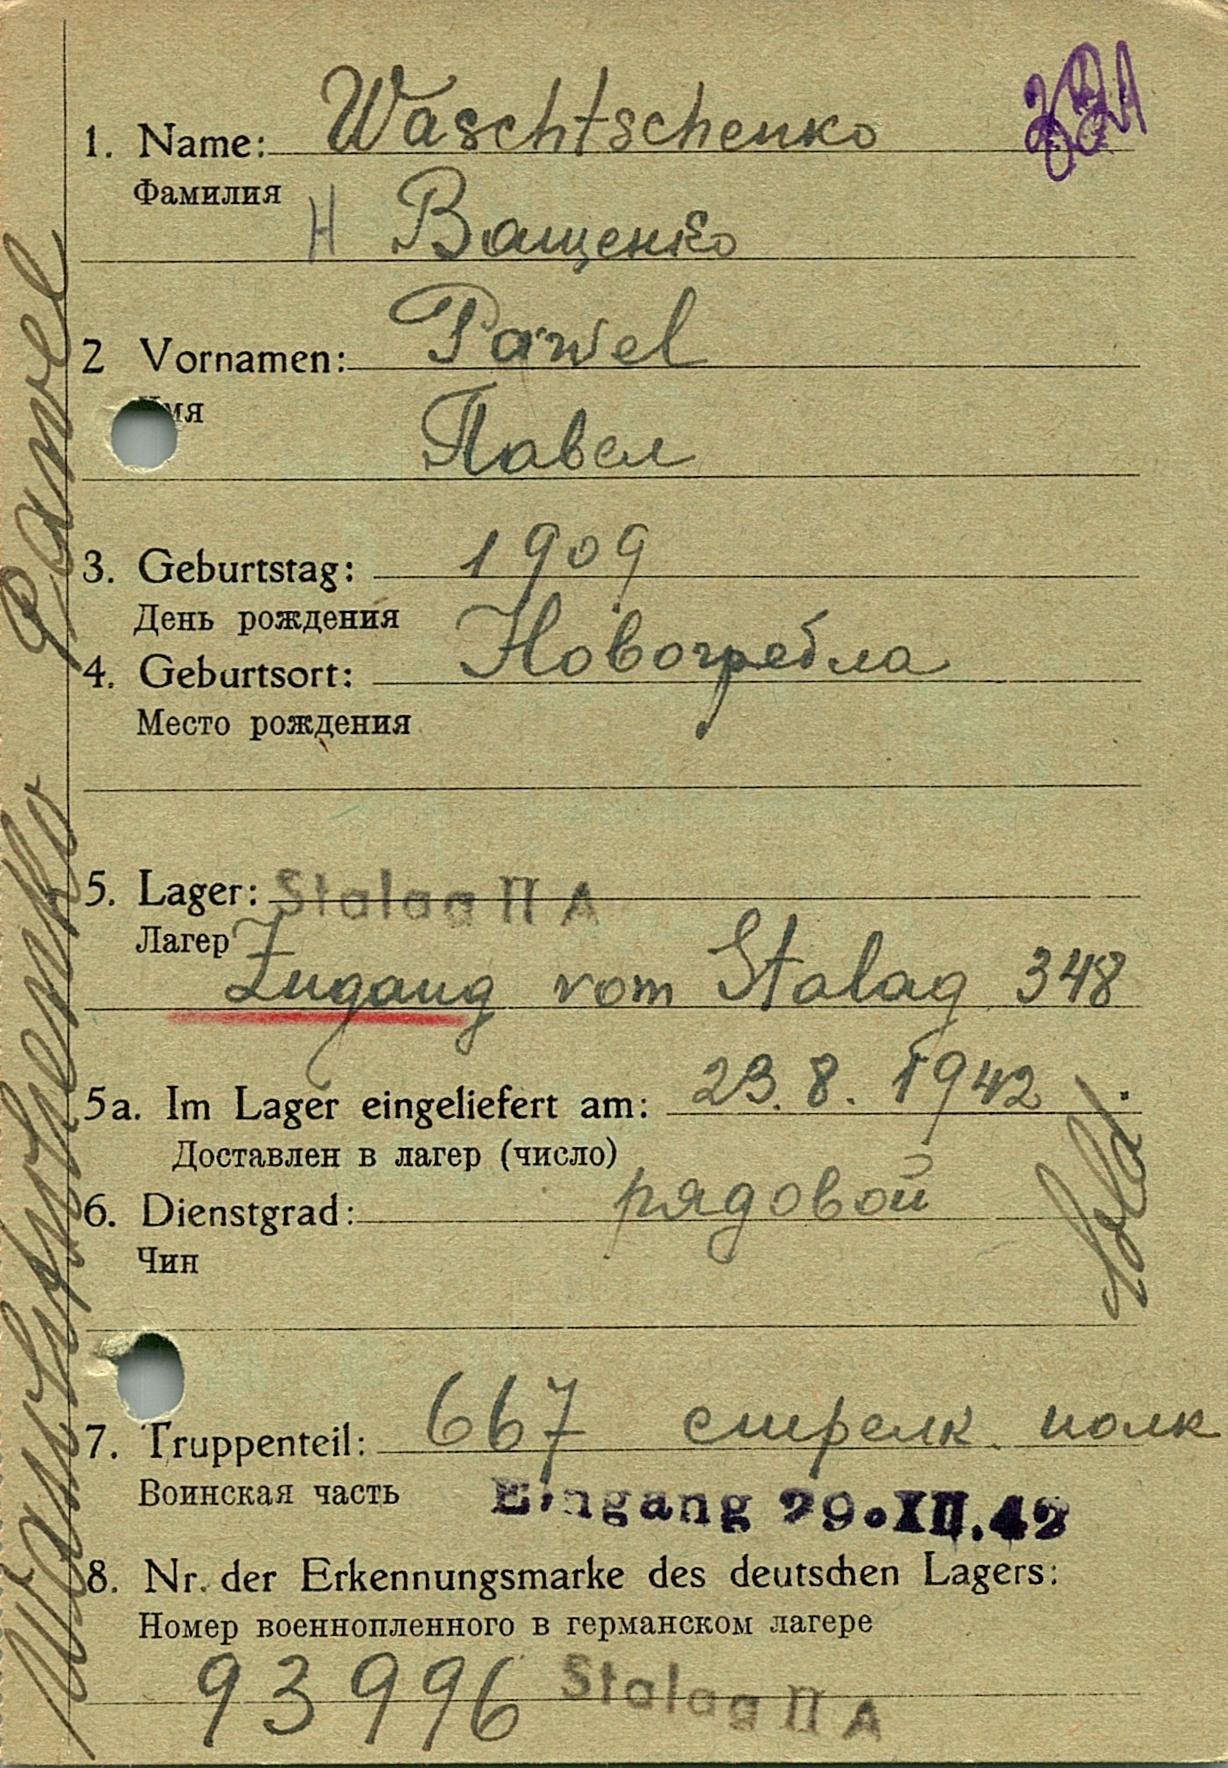 1. Name: Waschtschenko
Фамилия
Н Ващенко
2 Vornamen: Pawel
Имя
Павел
3. Geburtstag: 1909
День рождения
4. Geburtsort: Новогребла
Место рождения
5. Lager: Stalag II A
Лагер
Zugang vom Stalag 348
5a. Im Lager eingeliefert am: 23. 8. 1942.
Доставлен в лагер (число)
6. Dienstgrad: рядовой
Чин
7. Truppenteil: 667 стрелк. полк
Воинская часть
Eingang 29.XII.42
8. Nr. der Erkennungsmarke des deutschen Lagers:
Номер военнопленного в германском лагере
93996 Stalag II A
Waschtschenko Pawel